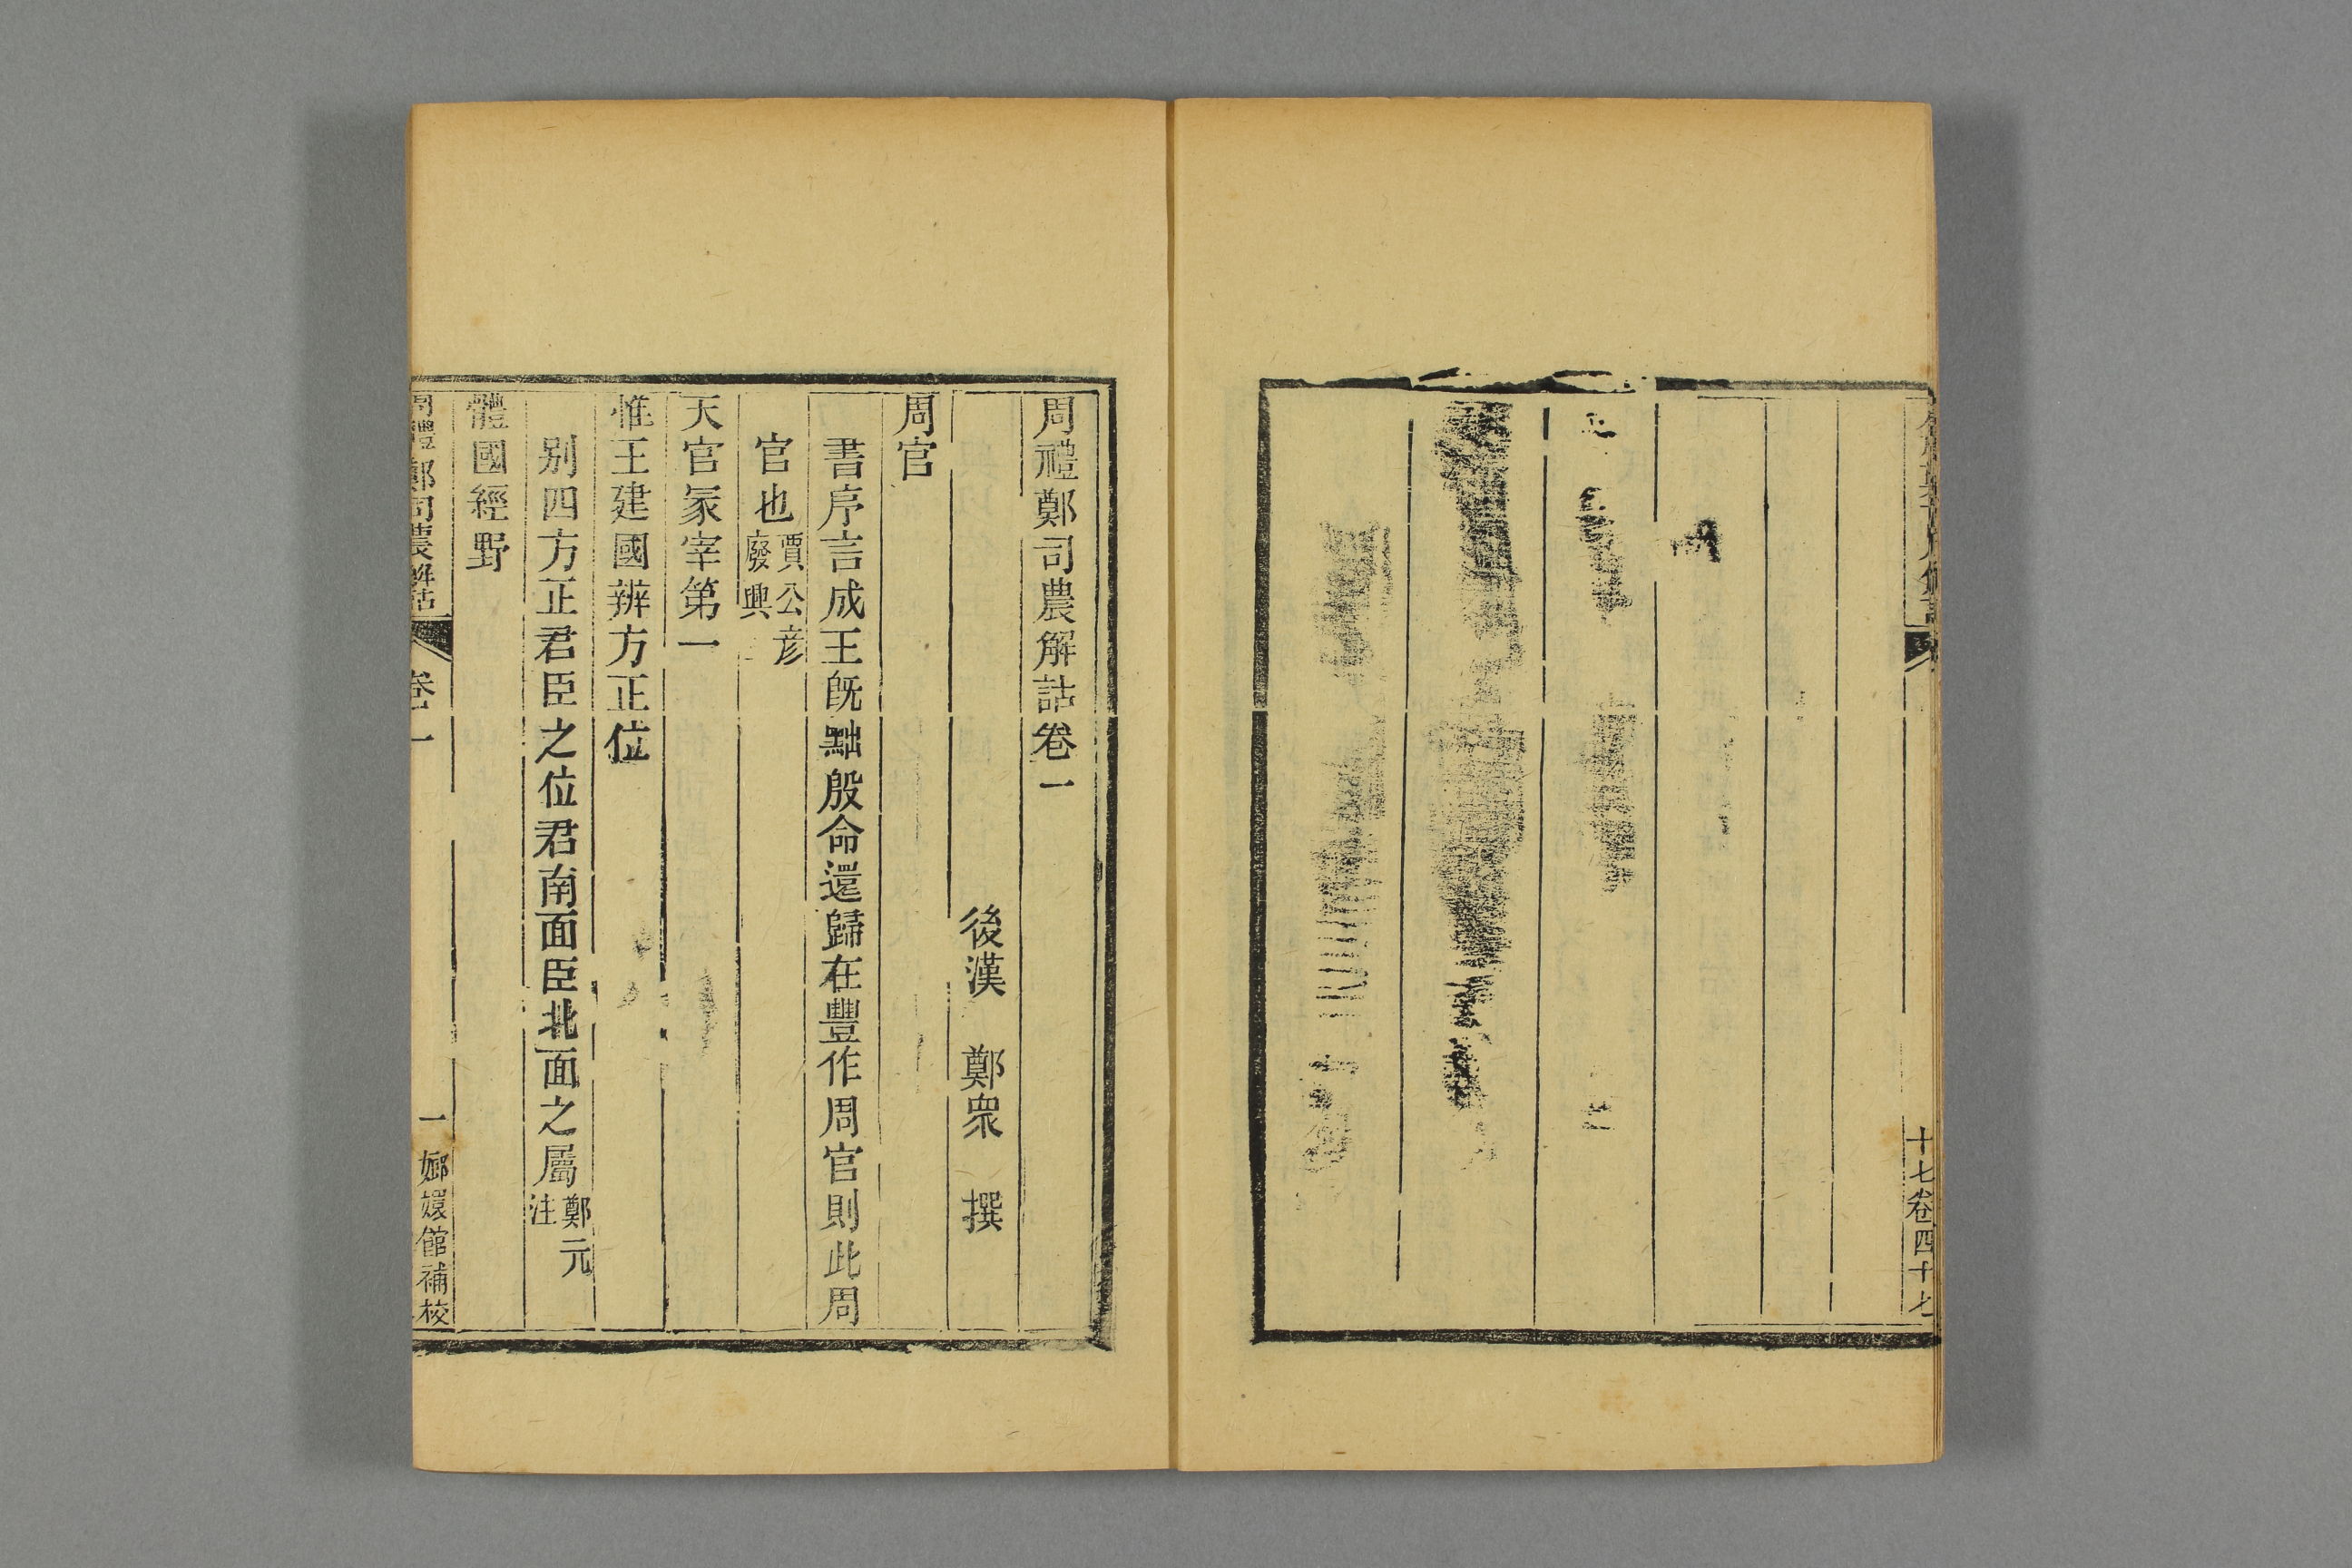 十七卷四十七
周禮鄭司農解詁卷一
後漢 鄭衆 撰
周官
書序言成王旣黜殷命還歸在豐作周官則此周
官也賈公彦
廢興
天官冢宰第一
惟王建國辨方正位
别四方正君臣之位君南面臣北面之屬鄭元
注
體國經野
周禮鄭司農解詁 卷一 一 嫏嬛館補校